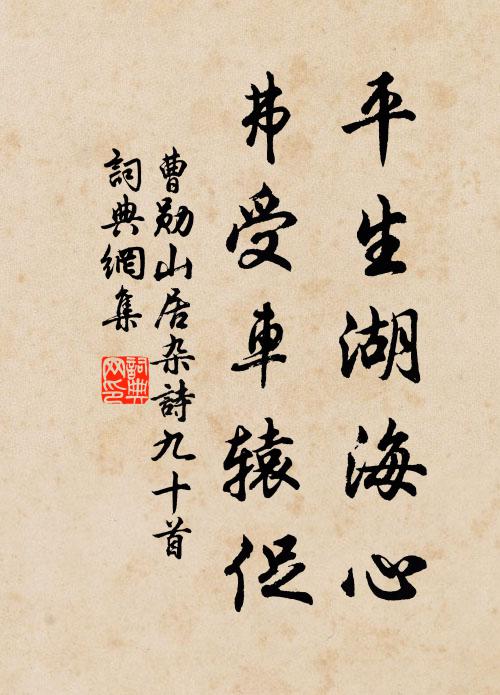 平生湖海心
弗受車辕促
曹勋山居杂詩九十首
詞典網集
詞典網印